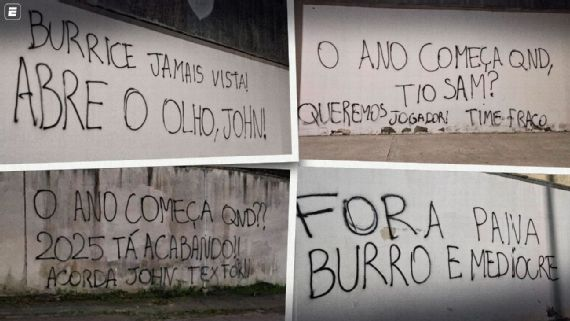 BURRICE JAMAIS VISTA!
ABRE O OLHO, JOHN!
O ANO COMEÇA QND,
TIO SAM?
QUEREMOS JOGADOR! TIME FRACO
O ANO COMEÇA QND??
2025 TÁ ACABANDO!!
ACORDA JOHN TEXTOR!!
FORA PAIVA
BURRO E MEDÍOCRE